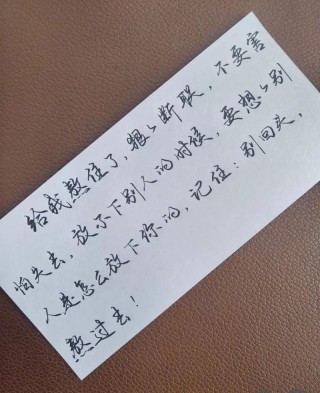 给我熬住了，狠狠断联，不要害
怕失去，放不下别人的时候，要想想别
人是怎么放下你的，记住：别回头，
熬过去！